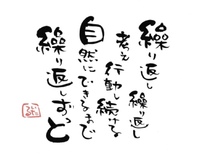 繰り返し
繰り返し
考え
行動し続ける
自然にできるまで
繰り返しずっと